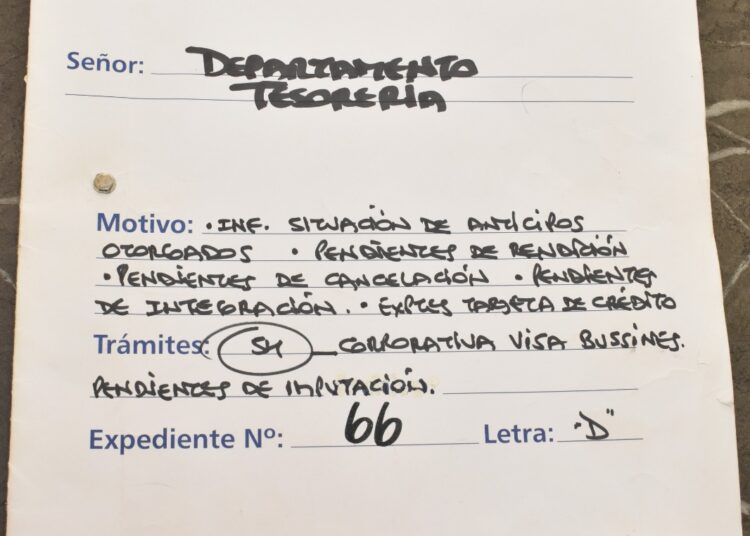 Señor: DEPARTAMENTO
TESORERÍA
Motivo: · INF. SITUACIÓN DE ANTICIPOS
OTORGADOS · PENDIENTES DE RENDICIÓN
· PENDIENTES DE CANCELACIÓN · PENDIENTES
DE INTEGRACIÓN. · EXPTES TARJETA DE CRÉDITO
Trámites: CORPORATIVA VISA BUSSINES.
PENDIENTES DE IMPUTACIÓN.
Expediente Nº: 66 Letra: "D"